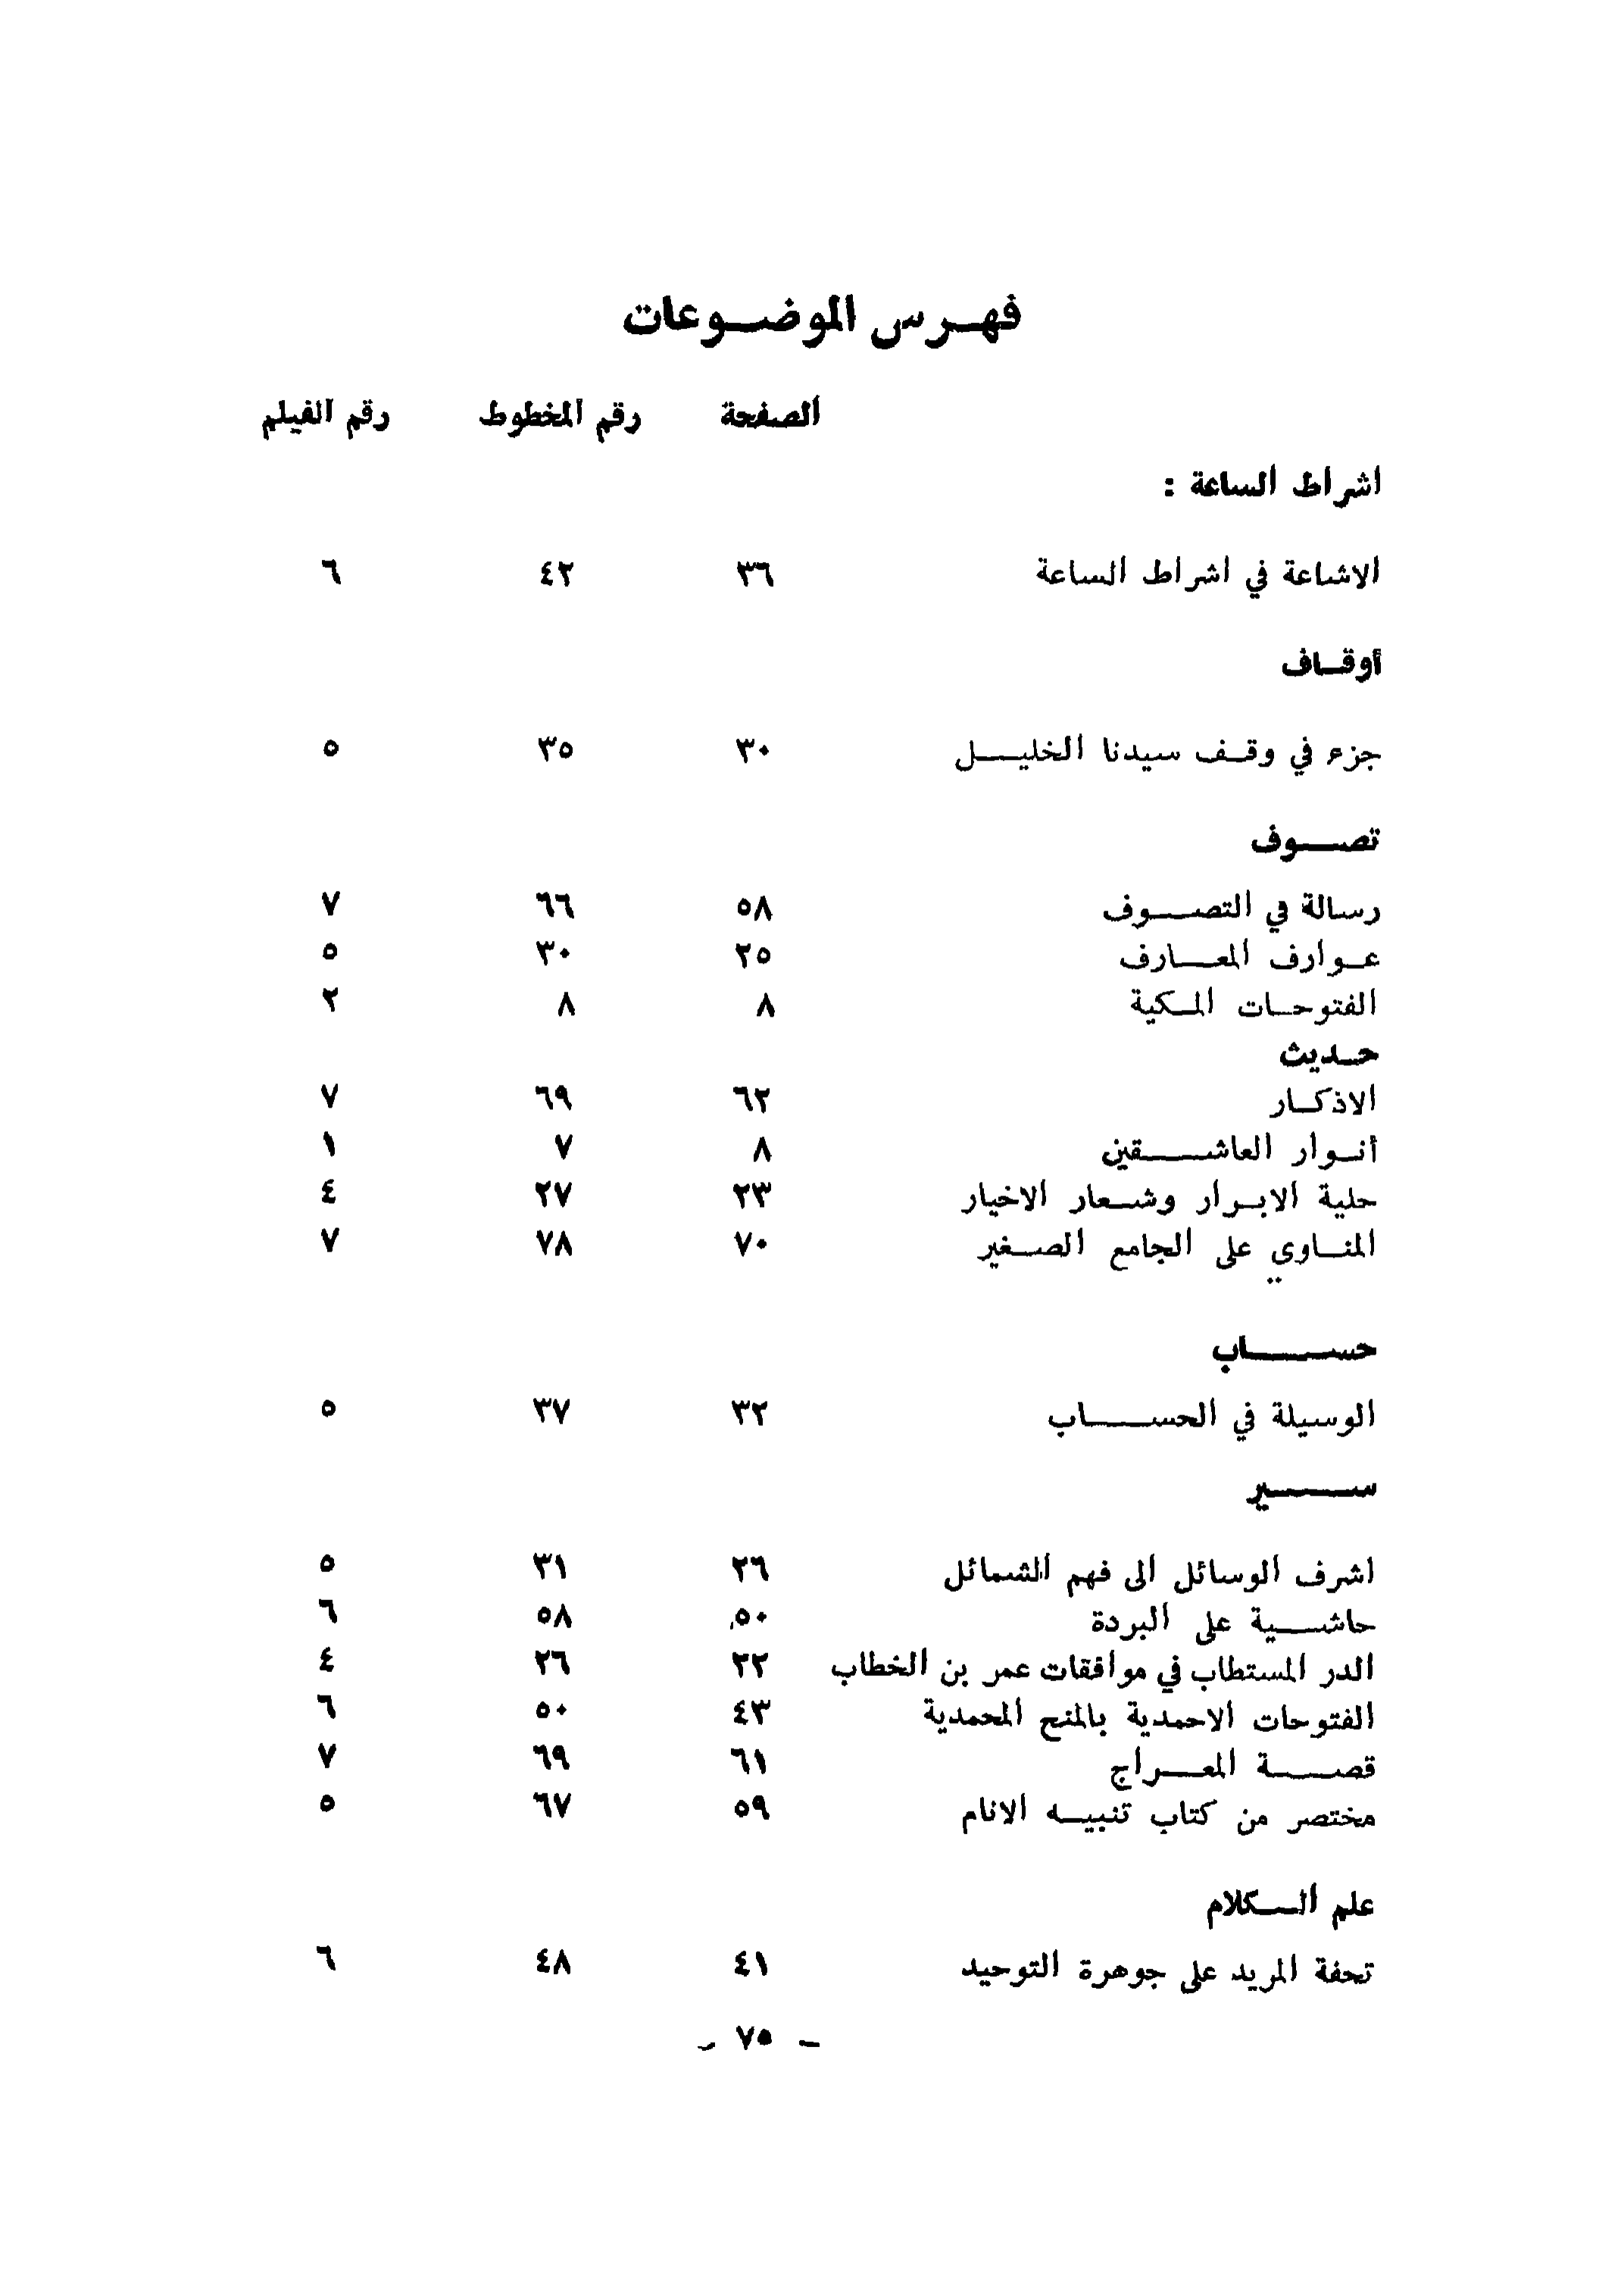 فهرس الموضوعات
الصفحة رقم المخطوط رقم الفيلم
اشراط الساعة :
الاشاعة في اشراط الساعة ٣٦ ٤٢ ٦
أوقاف
جزء في وقف سيدنا الخليل ٣٠ ٣٥ ٥
تصوف
رسالة في التصوف ٥٨ ٦٦ ٧
عوارف المعارف ٢٥ ٣٠ ٥
الفتوحات المكية ٨ ٨ ٢
حديث
الاذكار ٦٢ ٦٩ ٧
أنوار العاشقين ٨ ٧ ١
حلية الابرار وشعار الاخيار ٢٣ ٢٧ ٤
المناوي على الجامع الصغير ٧٠ ٧٨ ٧
حساب
الوسيلة في الحساب ٣٢ ٣٧ ٥
سير
اشرف الوسائل الى فهم الشمائل ٢٦ ٣١ ٥
حاشية على البردة ٥٠ ٥٨ ٦
الدر المستطاب في موافقات عمر بن الخطاب ٢٢ ٢٦ ٤
الفتوحات الاحمدية بالمنح المحمدية ٤٣ ٥٠ ٦
قصة المعراج ٦١ ٦٩ ٧
مختصر من كتاب تنبيه الانام ٥٩ ٦٧ ٥
علم الكلام
تحفة المريد على جوهرة التوحيد ٤١ ٤٨ ٦
- ٧٥ -